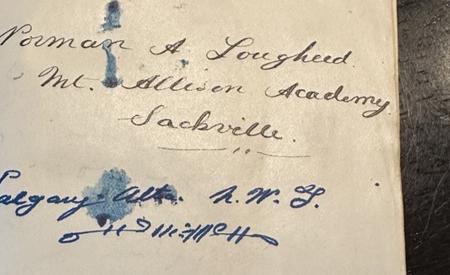 Norman A. Lougheed.
Mt. Allison Academy
Sackville.
Calgary Alta. N. W. T.